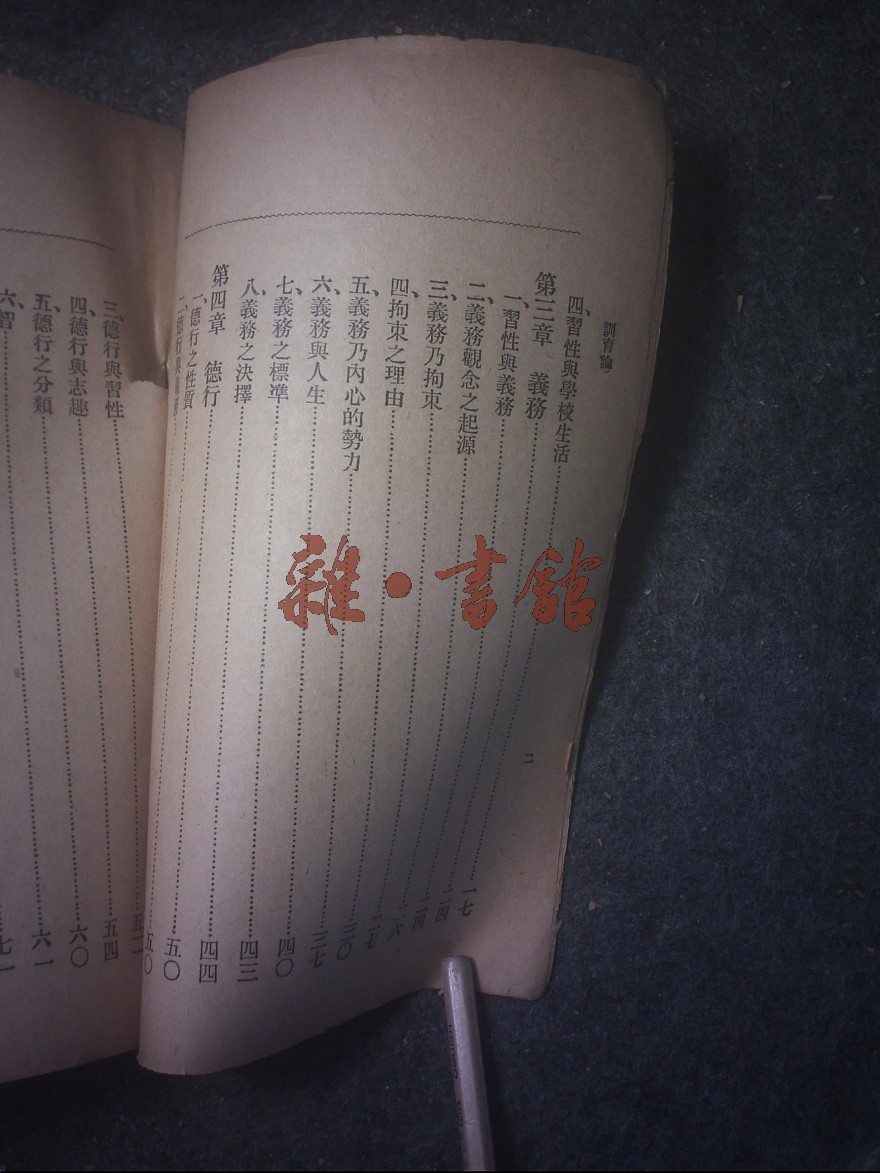 訓育論
二
四、習性與學校生活……一七
第三章　義務……二四
一、習性與義務……二四
二、義務觀念之起源……二六
三、義務乃拘束……二七
四、拘束之理由……三〇
五、義務乃內心的勢力……三七
六、義務與人生……四〇
七、義務之標準……四三
八、義務之決擇……四四
第四章　德行……五〇
一、德行之性質……五〇
二、德行與……
三、德行與習性……五二
四、德行與志趣……五四
五、德行之分類……六〇
六、智……六一
七一
雜·書館